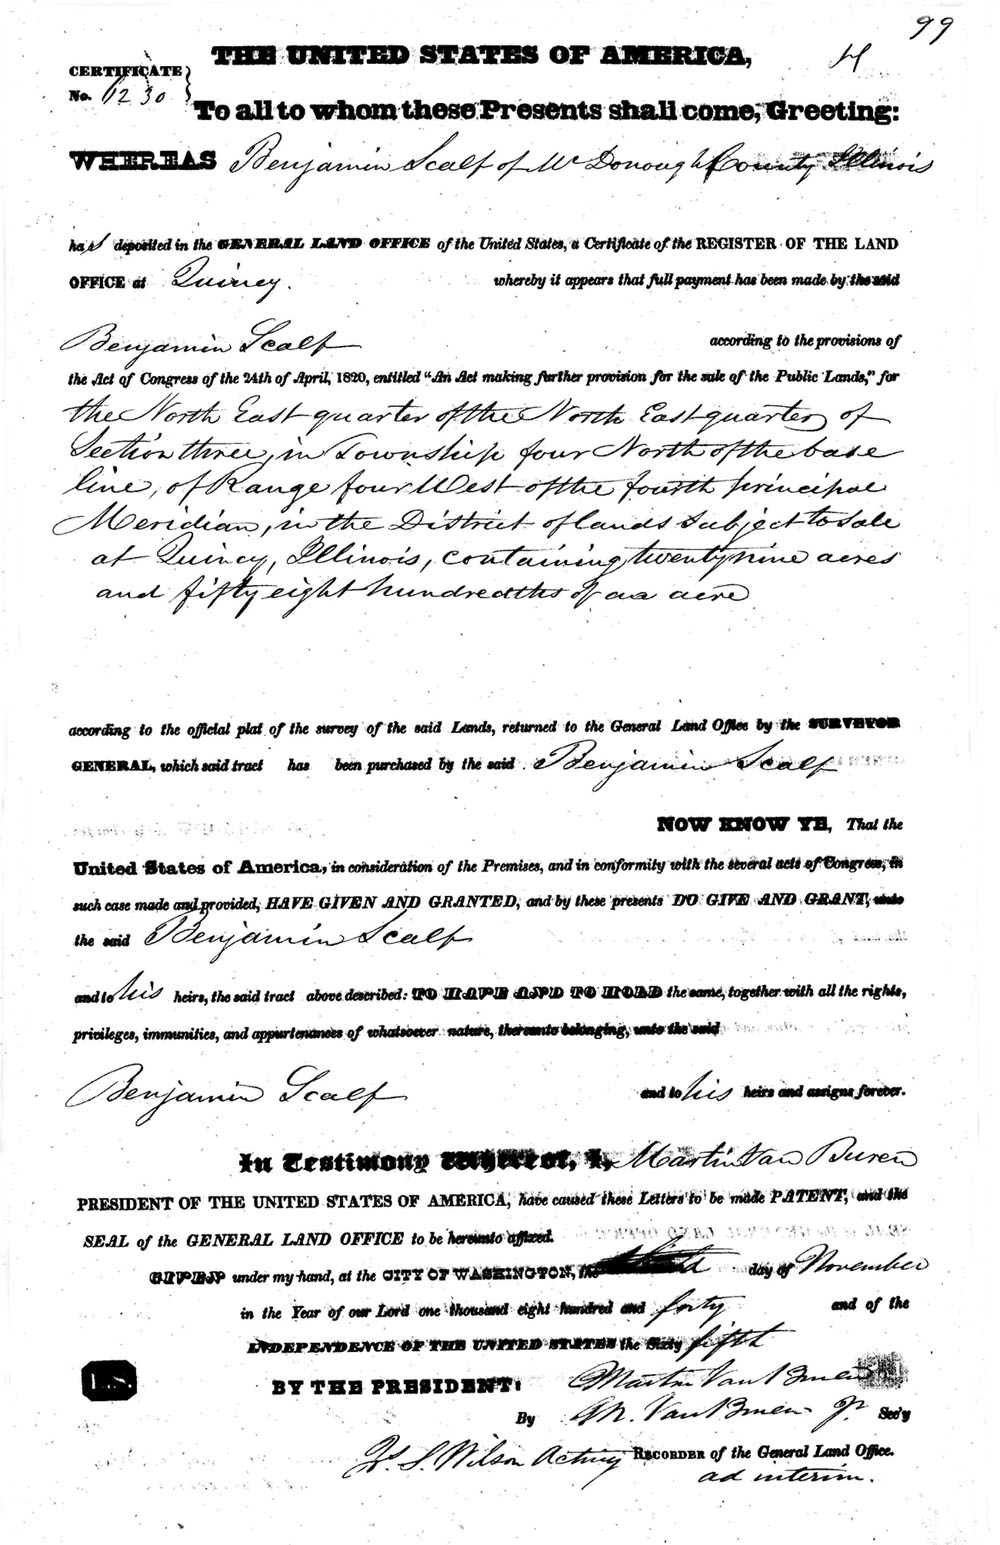 99
THE UNITED STATES OF AMERICA,
H
CERTIFICATE
No.
To all to whom these Presents shall come, Greeting:
WHEREAS Benjamin Scalf of Mc Donough County Illinois
has deposited in the GENERAL LAND OFFICE of the United States, a Certificate of the REGISTER OF THE LAND
OFFICE at Quincy. whereby it appears that full payment has been made by the said
Benjamin Scalf according to the provisions of
the Act of Congress of the 24th of April, 1820, entitled "An Act making further provision for the sale of the Public Lands," for
the North East quarter of the North East quarter of
Section three, in Township four North of the base
line, of Range four West of the fourth principal
Meridian, in the District of lands subject to sale
at Quincy, Illinois, containing twenty nine acres
and fifty eight hundredths of an acre
according to the official plat of the survey of the said Lands, returned to the General Land Office by the SURVEYOR
GENERAL, which said tract has been purchased by the said Benjamin Scalf
NOW KNOW YE, That the
United States of America, in consideration of the Premises, and in conformity with the several acts of Congress, in
such case made and provided, HAVE GIVEN AND GRANTED, and by these presents DO GIVE AND GRANT, unto
the said Benjamin Scalf
and to his heirs, the said tract above described: TO HAVE AND TO HOLD the same, together with all the rights,
privileges, immunities, and appurtenances of whatsoever nature, thereunto belonging, unto the said
Benjamin Scalf and to his heirs and assigns forever.
In Testimony Whereof, I, Martin Van Buren
PRESIDENT OF THE UNITED STATES OF AMERICA, have caused these Letters to be made PATENT, and the
SEAL of the GENERAL LAND OFFICE to be hereunto affixed.
GIVEN under my hand, at the CITY OF WASHINGTON, the day of November
in the Year of our Lord one thousand eight hundred and forty and of the
INDEPENDENCE OF THE UNITED STATES the Sixty fifth
L.S.
BY THE PRESIDENT: Martin Van Buren
By M. Van Buren Jr. Sec'y
S. Wilson Acting RECORDER of the General Land Office.
ad interim.